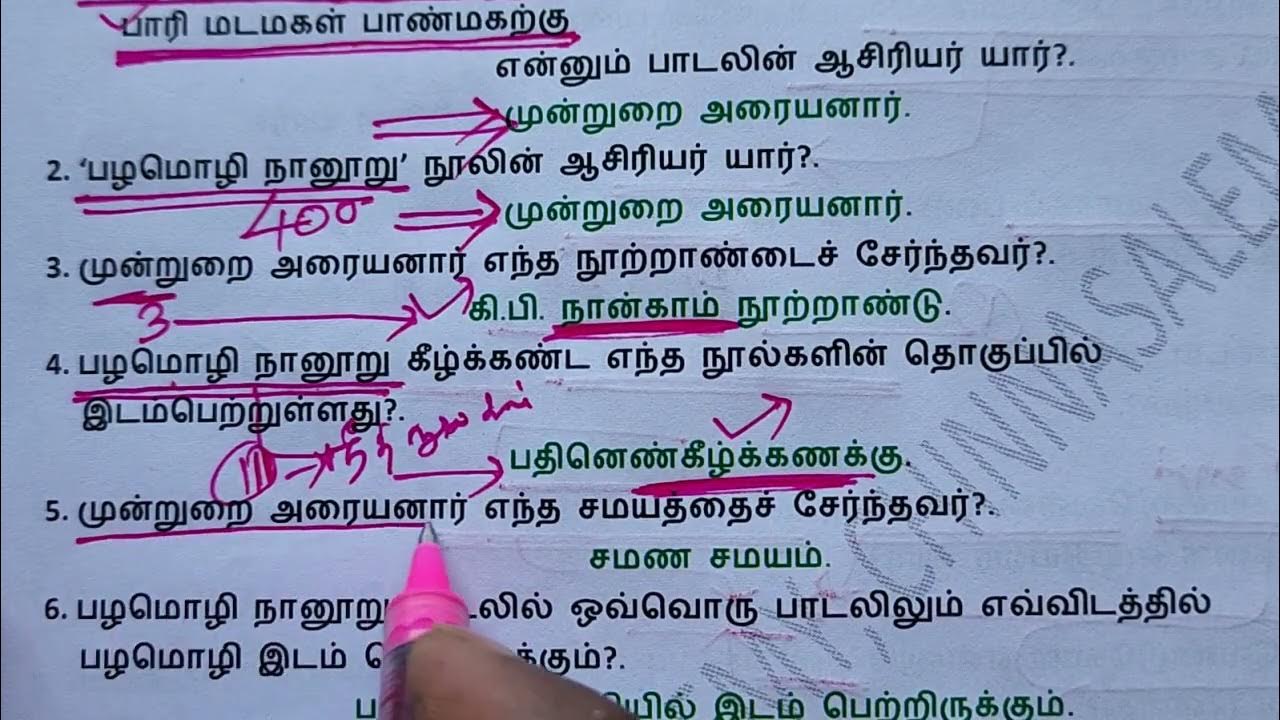 பாரி மடமகள் பாண்மகற்கு
என்னும் பாடலின் ஆசிரியர் யார்?.
முன்றுறை அரையனார்.
2. ‘பழமொழி நானூறு’ நூலின் ஆசிரியர் யார்?.
400
முன்றுறை அரையனார்.
3. முன்றுறை அரையனார் எந்த நூற்றாண்டைச் சேர்ந்தவர்?.
3
கி.பி. நான்காம் நூற்றாண்டு.
4. பழமொழி நானூறு கீழ்க்கண்ட எந்த நூல்களின் தொகுப்பில்
இடம்பெற்றுள்ளது?.
11 நீதி நூல்கள்
பதினெண்கீழ்க்கணக்கு.
5. முன்றுறை அரையனார் எந்த சமயத்தைச் சேர்ந்தவர்?.
சமண சமயம்.
6. பழமொழி நானூறு ஒவ்வொரு பாடலிலும் எவ்விடத்தில்
பழமொழி இடம்
இடம் பெற்றிருக்கும்.
CHINNASALEM